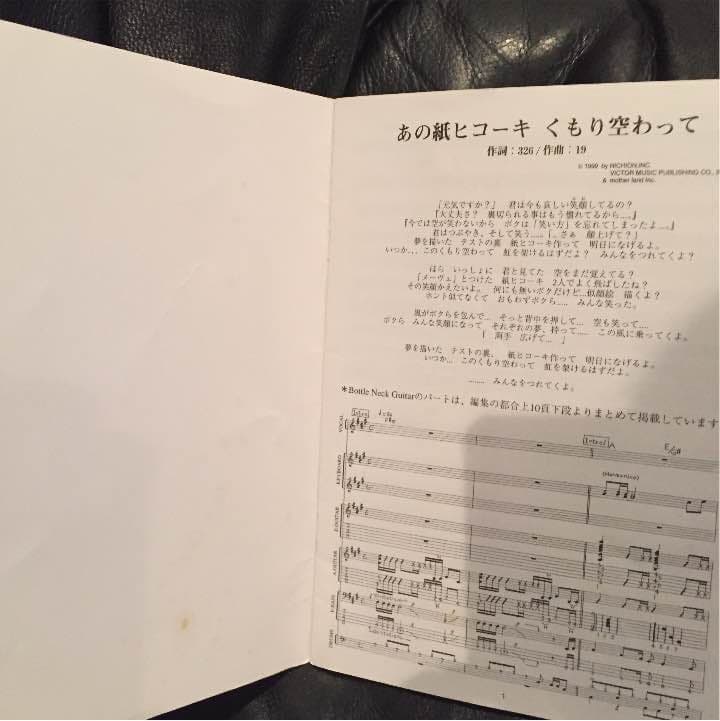 あの紙ヒコーキ くもり空わって
作詞：326 / 作曲：19
© 1999 by RICHION,INC.
VICTOR MUSIC PUBLISHING CO.,
& mother land Inc.
「元気ですか？」 君は今も哀しい笑顔してるの？
『大丈夫さ？ 裏切られる事はもう慣れてるから……。』
『今では空が笑わないから ボクは「笑い方」を忘れてしまったよ…。』
君はつぶやき、そして笑う……「…さぁ 顔上げて？」
夢を描いた テストの裏 紙ヒコーキ作って 明日になげるよ。
いつか… このくもり空わって 虹を架けるはずだよ？ みんなをつれてくよ？
ほら いっしょに 君と見てた 空をまだ覚えてる？
「メーヴェ」とつけた 紙ヒコーキ 2人でよく飛ばしたね？
その笑顔かえたいよ。 何にも無いボクだけど…似顔絵 描くよ？
ホント似てなくて おもわずボクら…… みんな笑った。
風がボクらを包んで… そっと背中を押して… 空も笑って……
ボクら みんな笑顔になって それぞれの夢、持って…… この風に乗ってくよ。
「 両手 広げて… 」
夢を描いた テストの裏、 紙ヒコーキ作って 明日になげるよ。
いつか… このくもり空わって 虹を架けるはずだよ。
……… みんなをつれてくよ。
＊Bottle Neck Guitarのパートは、編集の都合上10頁下段よりまとめて掲載しています
Intro
Intro A E/G#
VOCAL
(Harmonica)
KEYBOARD
E.GUITAR
A.GUITAR
E.BASS
DRUMS
1